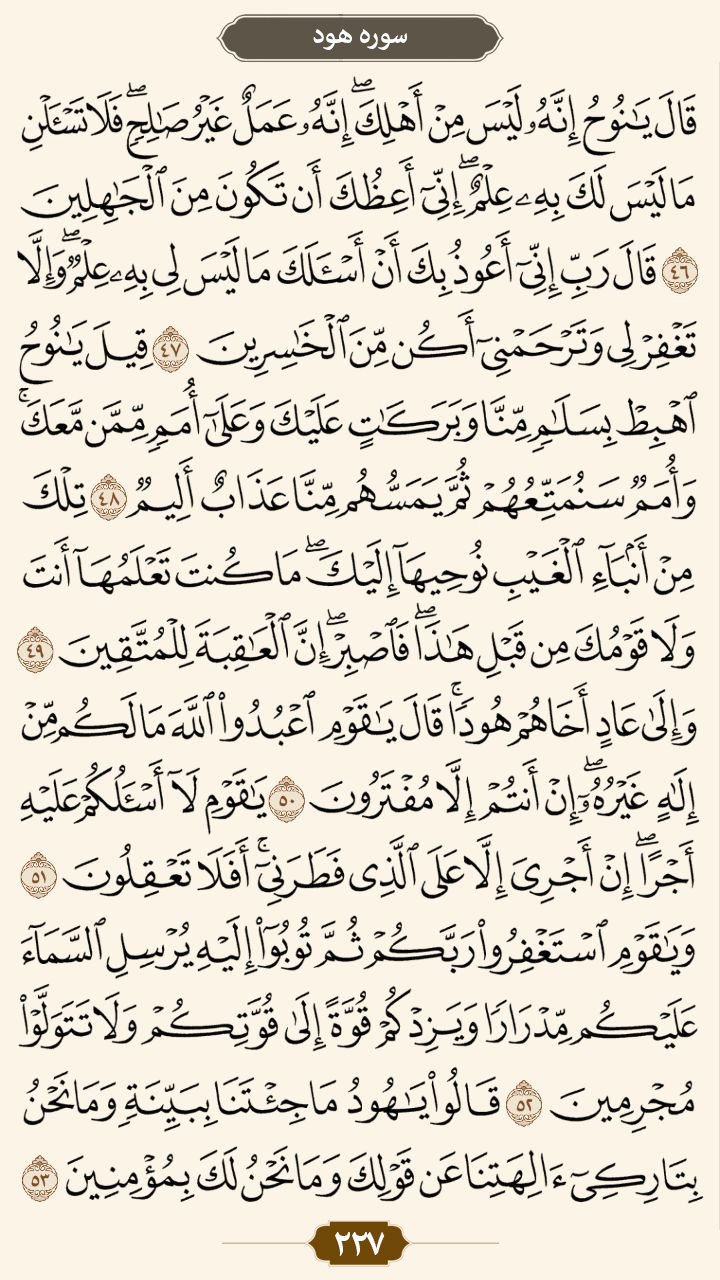 سوره هود
قَالَ يَـٰنُوحُ إِنَّهُۥ لَيْسَ مِنْ أَهْلِكَ ۖ إِنَّهُۥ عَمَلٌ غَيْرُ صَـٰلِحٍ ۖ فَلَا تَسْـَٔلْنِ
مَا لَيْسَ لَكَ بِهِۦ عِلْمٌ ۖ إِنِّىٓ أَعِظُكَ أَن تَكُونَ مِنَ ٱلْجَـٰهِلِينَ
٤٦ قَالَ رَبِّ إِنِّىٓ أَعُوذُ بِكَ أَنْ أَسْـَٔلَكَ مَا لَيْسَ لِى بِهِۦ عِلْمٌ ۖ وَإِلَّا
تَغْفِرْ لِى وَتَرْحَمْنِىٓ أَكُن مِّنَ ٱلْخَـٰسِرِينَ ٤٧ قِيلَ يَـٰنُوحُ
ٱهْبِطْ بِسَلَـٰمٍ مِّنَّا وَبَرَكَـٰتٍ عَلَيْكَ وَعَلَىٰٓ أُمَمٍ مِّمَّن مَّعَكَ ۚ
وَأُمَمٌ سَنُمَتِّعُهُمْ ثُمَّ يَمَسُّهُم مِّنَّا عَذَابٌ أَلِيمٌ ٤٨ تِلْكَ
مِنْ أَنۢبَآءِ ٱلْغَيْبِ نُوحِيهَآ إِلَيْكَ ۖ مَا كُنتَ تَعْلَمُهَآ أَنتَ
وَلَا قَوْمُكَ مِن قَبْلِ هَـٰذَا ۖ فَٱصْبِرْ ۖ إِنَّ ٱلْعَـٰقِبَةَ لِلْمُتَّقِينَ ٤٩
وَإِلَىٰ عَادٍ أَخَاهُمْ هُودًا ۚ قَالَ يَـٰقَوْمِ ٱعْبُدُوا۟ ٱللَّهَ مَا لَكُم مِّنْ
إِلَـٰهٍ غَيْرُهُۥٓ ۖ إِنْ أَنتُمْ إِلَّا مُفْتَرُونَ ٥٠ يَـٰقَوْمِ لَآ أَسْـَٔلُكُمْ عَلَيْهِ
أَجْرًا ۖ إِنْ أَجْرِىَ إِلَّا عَلَى ٱلَّذِى فَطَرَنِىٓ ۚ أَفَلَا تَعْقِلُونَ ٥١
وَيَـٰقَوْمِ ٱسْتَغْفِرُوا۟ رَبَّكُمْ ثُمَّ تُوبُوٓا۟ إِلَيْهِ يُرْسِلِ ٱلسَّمَآءَ
عَلَيْكُم مِّدْرَارًا وَيَزِدْكُمْ قُوَّةً إِلَىٰ قُوَّتِكُمْ وَلَا تَتَوَلَّوْا۟
مُجْرِمِينَ ٥٢ قَالُوا۟ يَـٰهُودُ مَا جِئْتَنَا بِبَيِّنَةٍ وَمَا نَحْنُ
بِتَارِكِىٓ ءَالِهَتِنَا عَن قَوْلِكَ وَمَا نَحْنُ لَكَ بِمُؤْمِنِينَ ٥٣
٢٢٧